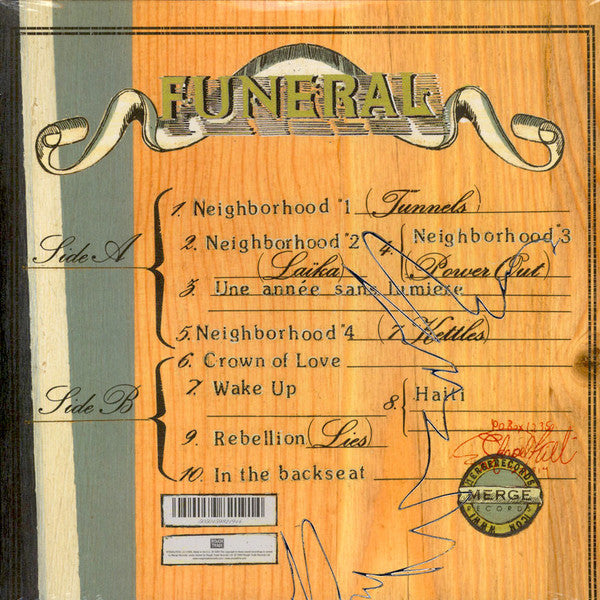 FUNERAL
Side A
1. Neighborhood #1 (Tunnels)
2. Neighborhood #2 (Laïka)
3. Une année sans lumiere
4. Neighborhood #3 (Power Out)
5. Neighborhood #4 (7 Kettles)
Side B
6. Crown of Love
7. Wake Up
8. Haiti
9. Rebellion (Lies)
10. In the backseat
MERGE
RECORDS